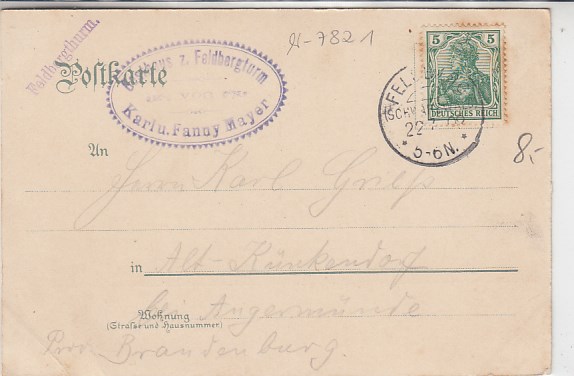 Feldbergthurm.
Postkarte
Gasthaus z. Feldbergturm
Karl u. Fanny Mayer
A-7821
5 5
DEUTSCHES REICH
FEL
(SCHW
22
* 5-6N. *
8,-
An
Herrn Karl
in Alt-Künkendorf
Wohnung
bei Angermünde
(Straße und Hausnummer)
Prov. Brandenburg.